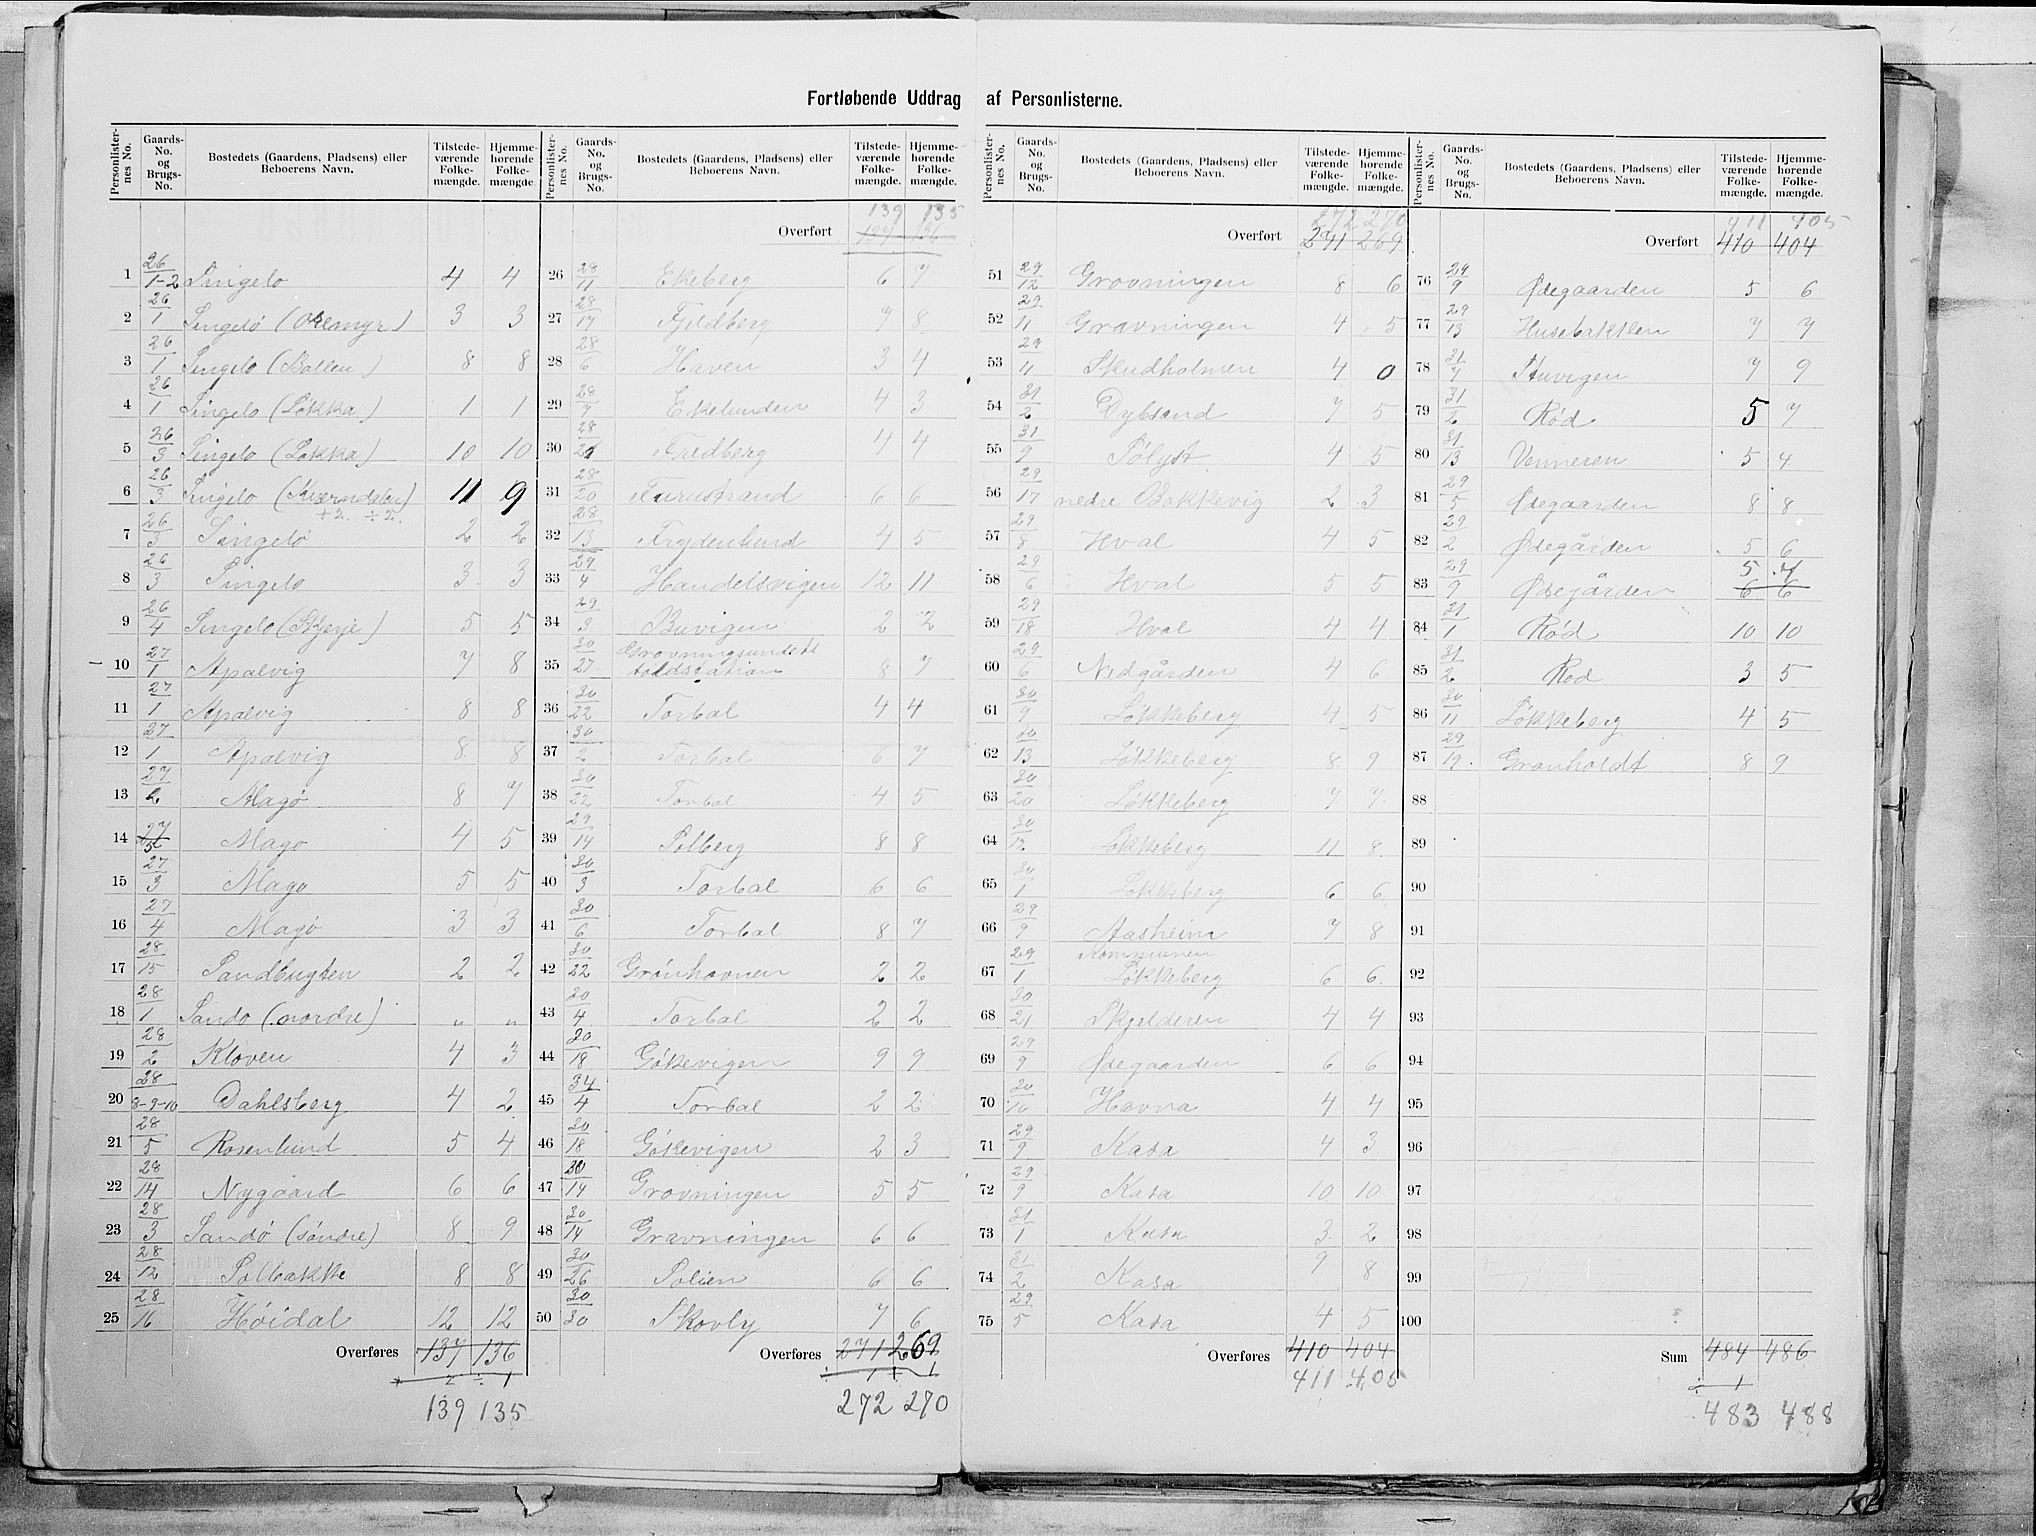 Fortløbende Uddrag af Personlisterne.
Personlister-nes No. | Gaards-No. og Brugs-No. | Bostedets (Gaardens, Pladsens) eller Beboerens Navn. | Tilstede-værende Folke-mængde. | Hjemme-hørende Folke-mængde.
1 26/1-2 Singelo 4 4
2 26/1 Singelø (Oremyr) 3 3
3 26/1 Singelo (Bollen) 8 8
4 26/1 Singelo (Løkka) 1 1
5 26/3 Singelo (Løkka) 10 10
6 26/3 Singelo (Kværndalen) 11 9
+2. ÷2.
7 26/3 Singelø 2 2
8 26/3 Singelo 3 3
9 26/4 Singelo (Skjerje) 5 5
10 27/1 Apalvig 7 8
11 27/1 Apalvig 8 8
12 27/1 Apalvig 8 8
13 27/2 Magø 8 7
14 27/5 Magø 4 5
15 27/3 Magø 5 5
16 27/4 Magø 3 3
17 28/15 Sandbugten 2 2
18 28/1 Sando (nordre) „ „
19 28/2 Kloven 4 3
20 28/8-9-10 Dahlsberg 4 2
21 28/5 Rosenlund 5 4
22 28/14 Nygaard 6 6
23 28/3 Sandø (søndre) 8 9
24 28/12 Solbakke 8 8
25 28/16 Høidal 12 12
Overføres 137 136
+ 2 ÷ 1
139 135
Personlister-nes No. | Gaards-No. og Brugs-No. | Bostedets (Gaardens, Pladsens) eller Beboerens Navn. | Tilstede-værende Folke-mængde. | Hjemme-hørende Folke-mængde.
139 135
Overført 137 136
26 28/11 Ekeberg 6 7
27 28/17 Fjeldberg 7 8
28 28/6 Haven 3 4
29 28/7 Ekelunden 4 3
30 28/21 Fredberg 4 4
31 28/20 Furustrand 6 6
32 28/13 Frydenlund 4 5
33 29/4 Handelsvigen 12 11
34 29/3 Buvigen 2 2
35 30/27 Grovningsundets toldstation 8 7
36 30/22 Torbal 4 4
37 30/2 Torbal 6 7
38 30/22 Torbal 4 5
39 29/14 Solberg 8 8
40 30/3 Torbal 6 6
41 30/6 Torbal 8 7
42 30/22 Grønhavnen 2 2
43 30/4 Torbal 2 2
44 30/18 Gökevigen 9 9
45 34/4 Torbal 2 2
46 30/18 Gökevigen 2 3
47 30/14 Grovningen 5 5
48 30/14 Gravningen 6 6
49 30/26 Solien 6 6
50 30/30 Skovly 7 6
Overføres 271 269
1 + 1
272 270
Personlister-nes No. | Gaards-No. og Brugs-No. | Bostedets (Gaardens, Pladsens) eller Beboerens Navn. | Tilstede-værende Folke-mængde. | Hjemme-hørende Folke-mængde.
272 270
Overført 271 269
51 29/12 Grovningen 8 6
52 29/11 Gravningen 4 5
53 29/11 Skudholmen 4 0
54 31/2 Dybsand 7 5
55 31/9 Sølyst 4 5
56 29/17 nedre Bakkevig 2 3
57 29/8 Hval 4 5
58 29/6 Hval 5 5
59 29/18 Hval 4 4
60 29/6 Nedgården 4 6
61 30/9 Løkkeberg 4 5
62 30/13 Løkkeberg 8 9
63 30/20 Løkkeberg 7 7
64 30/12 Løkkeberg 11 8
65 30/1 Løkkeberg 6 6
66 29/9 Aasheim 7 8
67 29/1 Kommunen Løkkeberg 6 6
68 30/21 Skjelderen 4 4
69 29/9 Ødegaarden 6 6
70 30/10 Havna 4 4
71 29/9 Kasa 4 3
72 29/9 Kasa 10 10
73 31/1 Kasa 3 2
74 31/2 Kasa 9 8
75 29/5 Kasa 4 5
Overføres 410 404
411 405
Personlister-nes No. | Gaards-No. og Brugs-No. | Bostedets (Gaardens, Pladsens) eller Beboerens Navn. | Tilstede-værende Folke-mængde. | Hjemme-hørende Folke-mængde.
411 405
Overført 410 404
76 29/9 Ødegaarden 5 6
77 29/13 Husebakken 7 7
78 31/7 Stuvigen 7 9
79 31/2 Rød 5 7
80 31/13 Venneren 5 4
81 29/5 Ødegaarden 8 8
82 29/2 Ødegården 5 6
5 7
83 29/9 Ødegården 6 6
84 31/1 Rød 10 10
85 31/2 Rød 3 5
86 30/11 Løkkeberg 4 5
87 29/19 Grønholdt 8 9
88
89
90
91
92
93
94
95
96
97
98
99
100
Sum 484 486
÷ 1
483 488